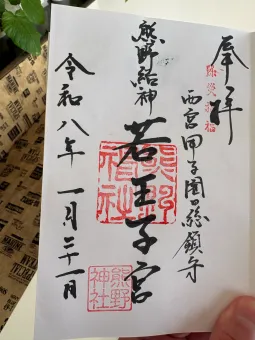 奉拝
除災招福
西宮甲子園口総鎮守
熊野結神
若王子宮
熊野神社
熊野神社
令和八年 一月二十一日